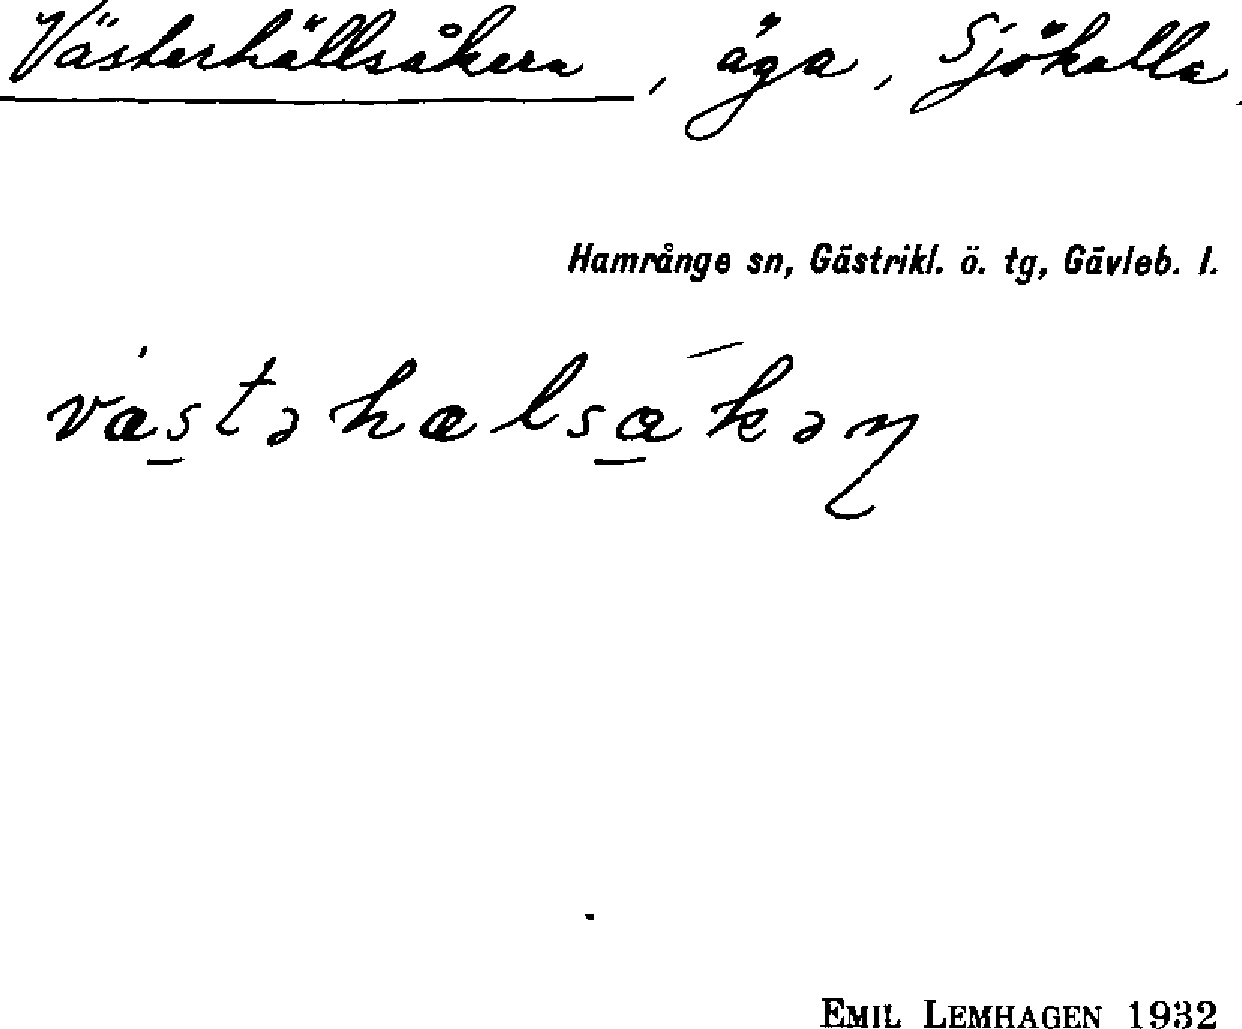 Västerhällsåkern, äga, Sjökalla.
Hamrånge sn, Gästrikl. ö. tg, Gävleb. l.
væstəhælsåkəɳ
EMIL LEMHAGEN 1932